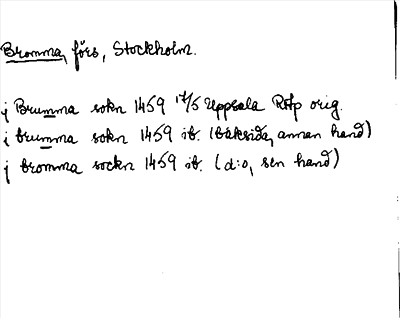 Bromma, förs, Stockholm.
j Brumma sokn 1459 17/5 Uppsala RAp orig.
i brumma sokn 1459 ib. (baksida, annan hand)
j bromma sockn 1459 ib. (d:o, sen hand)